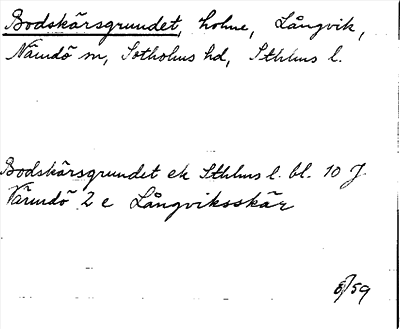 Bodskärsgrundet, holme, Långvik,
Nämdö sn, Sotholms hd, Sthlms l.
Bodskärsgrundet ek Sthlms l. bl. 10 J.
Värmdö 2 e Långviksskär
/59